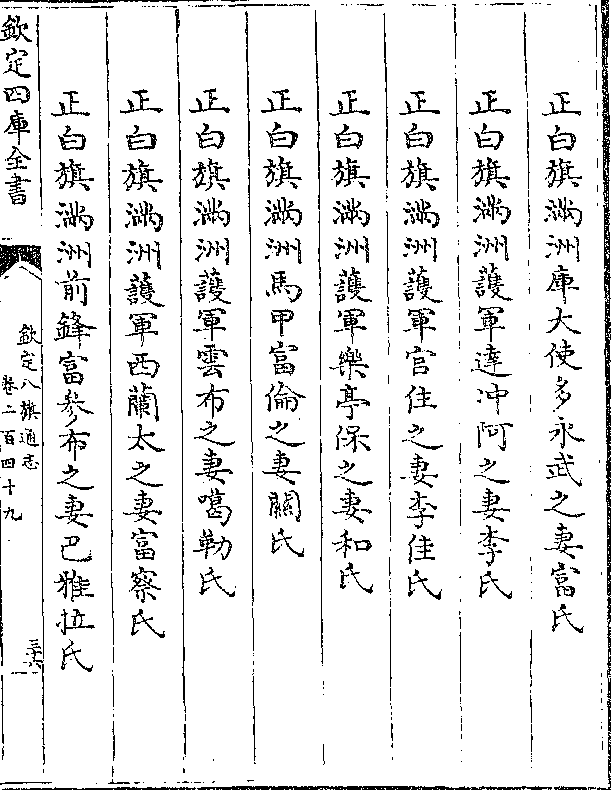 正白旗滿洲庫大使多永武之妻富氏
正白旗滿洲護軍達冲阿之妻李氏
正白旗滿洲護軍官住之妻李佳氏
正白旗滿洲護軍樂亭保之妻和氏
正白旗滿洲馬甲富倫之妻關氏
正白旗滿洲護軍雲布之妻噶勒氏
正白旗滿洲護軍西蘭太之妻富察氏
正白旗滿洲前鋒富參布之妻巴雅拉氏
欽定四庫全書
欽定八旗通志
卷二百四十九
三十六